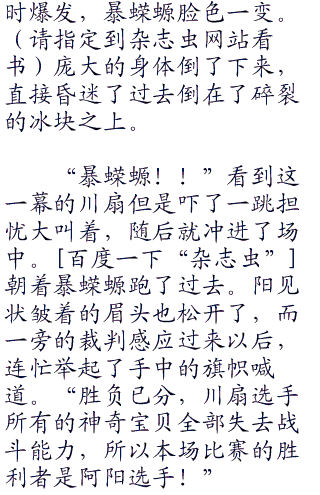 时爆发，暴蝾螈脸色一变。
（请指定到杂志虫网站看
书）庞大的身体倒了下来，
直接昏迷了过去倒在了碎裂
的冰块之上。
“暴蝾螈！！”看到这
一幕的川扇但是吓了一跳担
忧大叫着，随后就冲进了场
中。[百度一下“杂志虫”]
朝着暴蝾螈跑了过去。阳见
状皱着的眉头也松开了，而
一旁的裁判感应过来以后，
连忙举起了手中的旗帜喊
道。“胜负已分，川扇选手
所有的神奇宝贝全部失去战
斗能力，所以本场比赛的胜
利者是阿阳选手！”